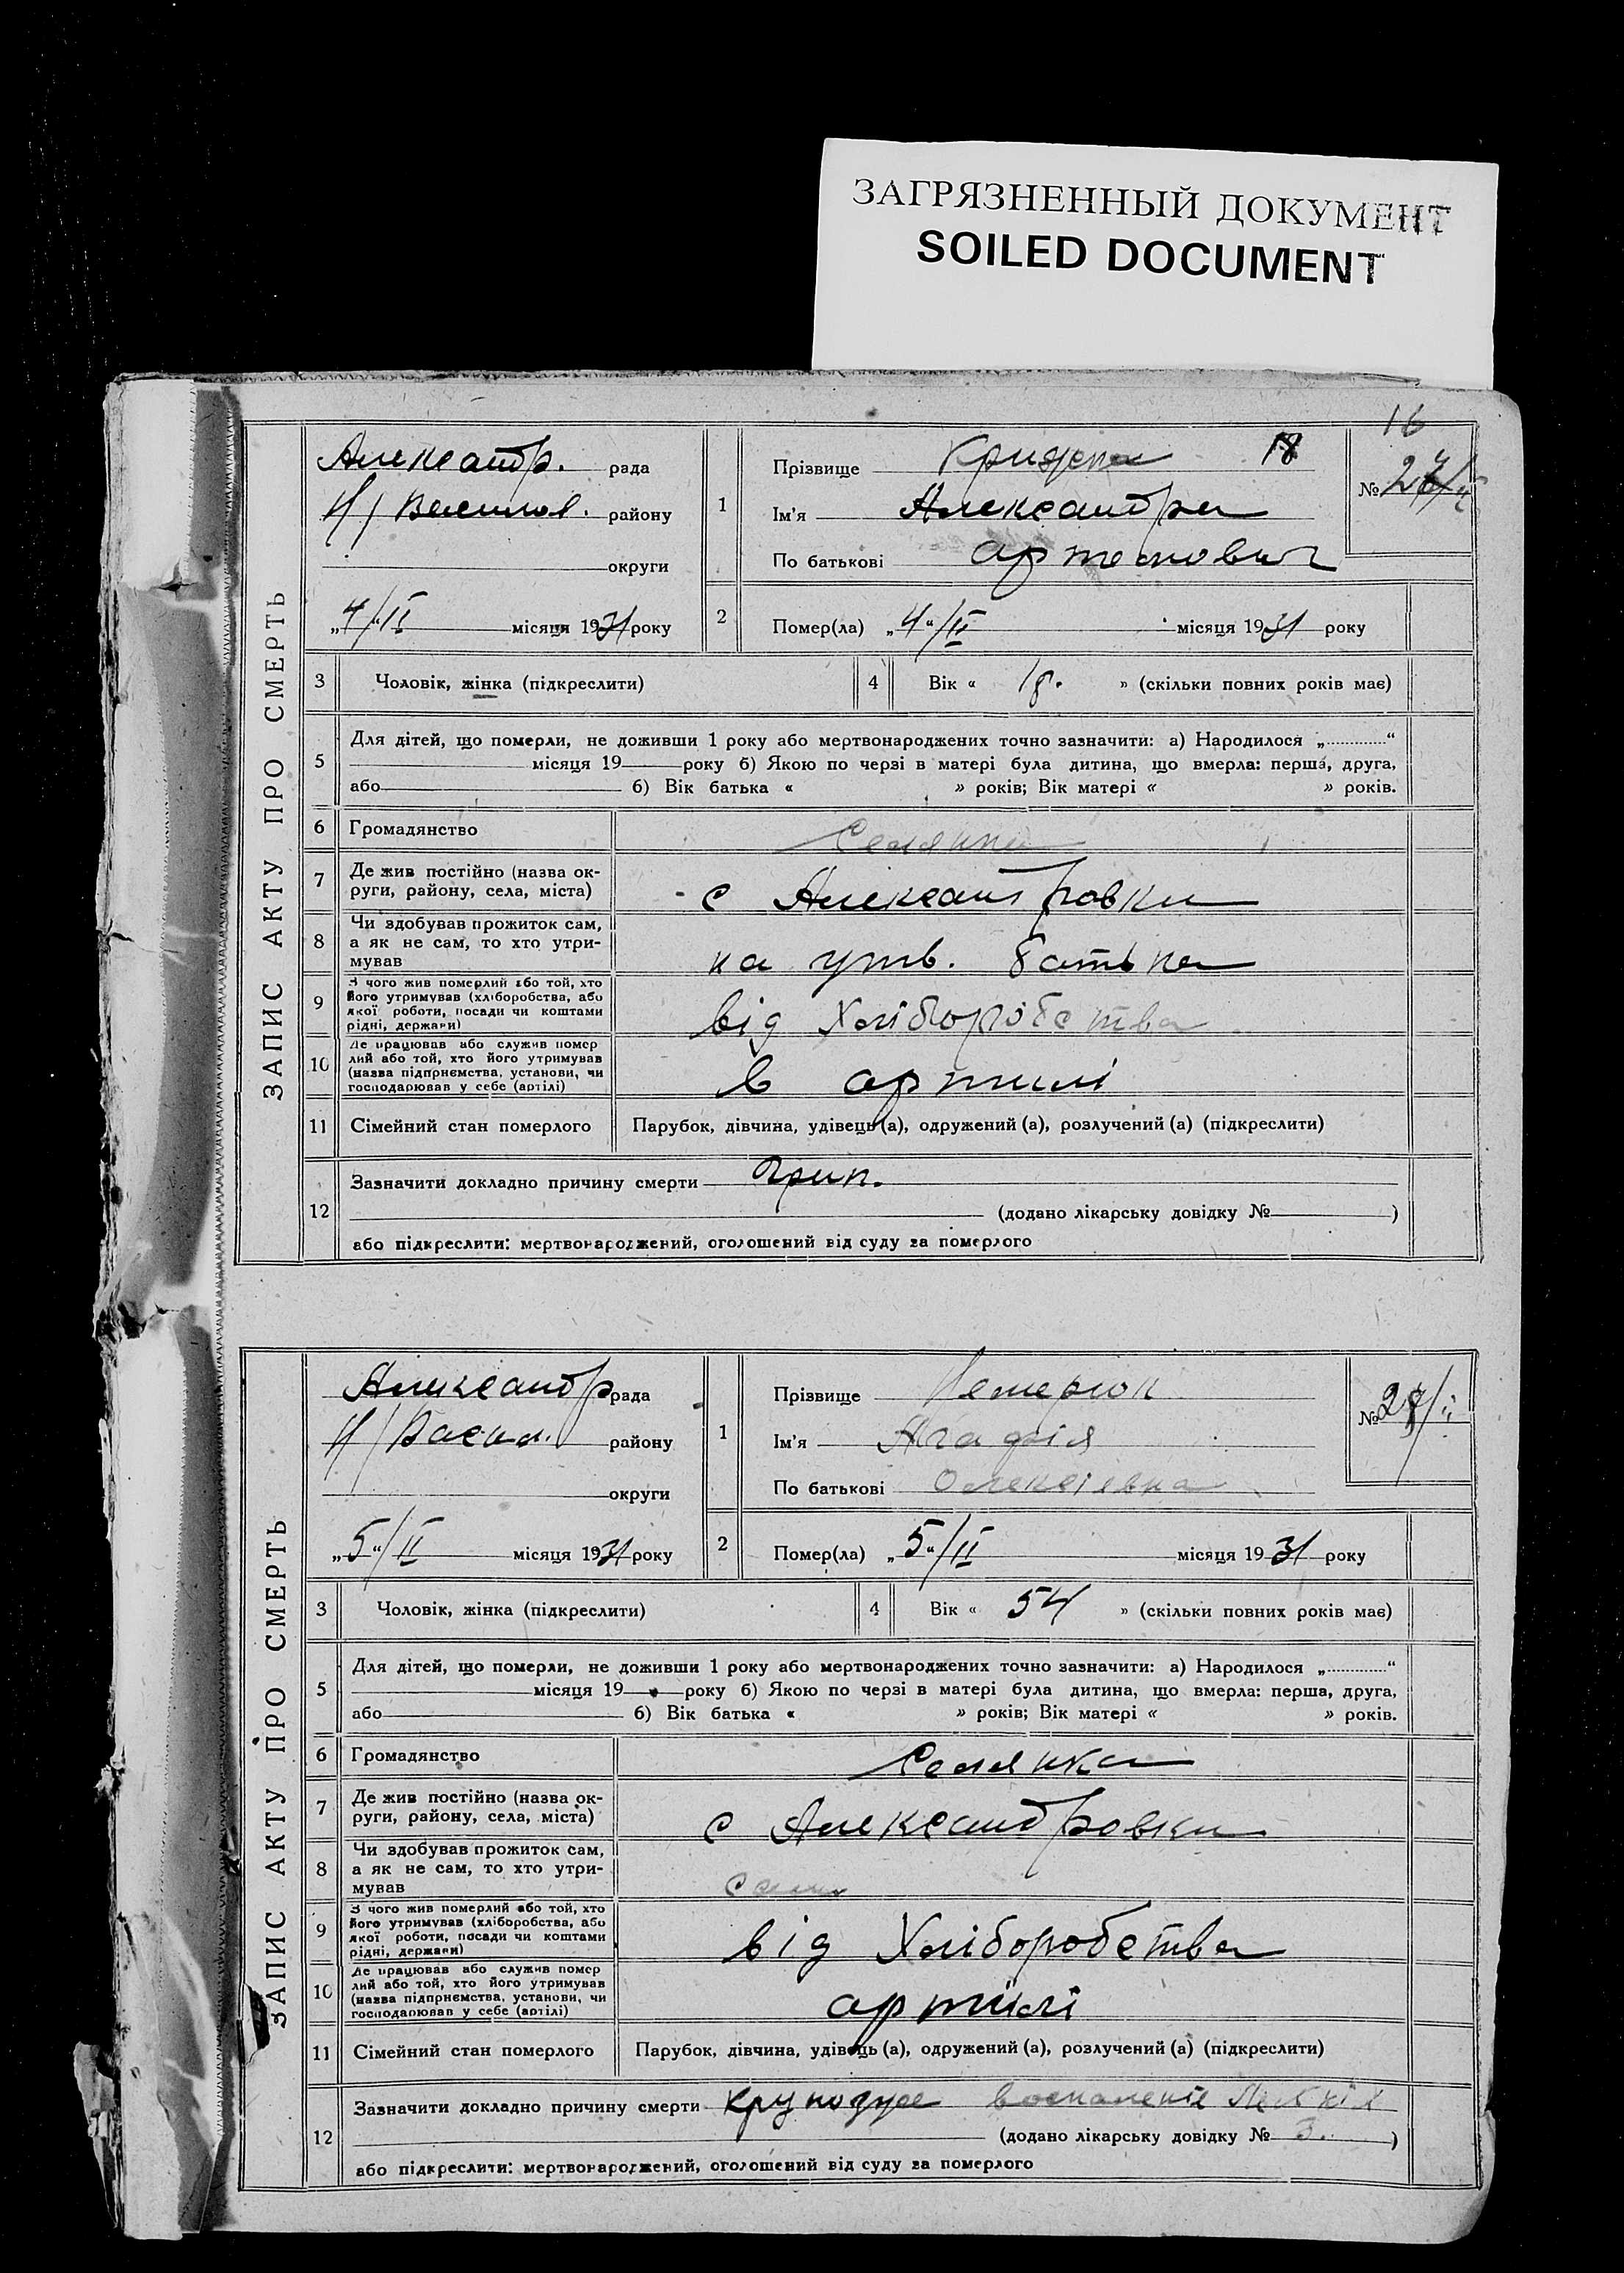 ЗАГРЯЗНЕННЫЙ ДОКУМЕНТ
SOILED DOCUMENT
16
ЗАПИС АКТУ ПРО СМЕРТЬ
Александр. рада
Н/Васил. району
округи
„4“/II місяця 1931 року
1
Прізвище 18
Ім'я Александра
По батькові
№
2
Помер(ла) „4“/II місяця 1931 року
3 Чоловік, жінка (підкреслити)
4 Вік « 18. » (скільки повних років має)
5
Для дітей, що померли, не доживши 1 року або мертвонароджених точно зазначити: а) Народилося „............“
місяця 19 року б) Якою по черзі в матері була дитина, що вмерла: перша, друга,
або б) Вік батька « » років; Вік матері « » років.
6 Громадянство Селянка
7
Де жив постійно (назва ок-
руги, району, села, міста)
с Александровки
8
Чи здобував прожиток сам,
а як не сам, то хто утри-
мував
на утв. батька
9
З чого жив померлий або той, хто
його утримував (хліборобства, або
якої роботи, посади чи коштами
рідні, держави)
від Хліборобства
10
Де працював або служив помер
лий або той, хто його утримував
(назва підприємства, установи, чи
господарював у себе (артілі)
в артилі
11 Сімейний стан померлого Парубок, дівчина, удівець (а), одружений (а), розлучений (а) (підкреслити)
12
Зазначити докладно причину смерти Грип.
(додано лікарську довідку № )
або підкреслити: мертвонароджений, оголошений від суду за померлого
ЗАПИС АКТУ ПРО СМЕРТЬ
Александр рада
Н/Васил. району
округи
„5“/II місяця 1931 року
1
Прізвище
Ім'я Агафія
По батькові Олексіевна
№
2
Помер(ла) „5“/II місяця 1931 року
3 Чоловік, жінка (підкреслити)
4 Вік « 54 » (скільки повних років має)
5
Для дітей, що померли, не доживши 1 року або мертвонароджених точно зазначити: а) Народилося „............“
місяця 19 року б) Якою по черзі в матері була дитина, що вмерла: перша, друга,
або б) Вік батька « » років; Вік матері « » років.
6 Громадянство Селянка
7
Де жив постійно (назва ок-
руги, району, села, міста)
с Александровки
8
Чи здобував прожиток сам,
а як не сам, то хто утри-
мував
сама
9
З чого жив померлий або той, хто
його утримував (хліборобства, або
якої роботи, посади чи коштами
рідні, держави)
від Хліборобства
10
Де працював або служив помер
лий або той, хто його утримував
(назва підприємства, установи, чи
господарював у себе (артілі)
артилі
11 Сімейний стан померлого Парубок, дівчина, удівець (а), одружений (а), розлучений (а) (підкреслити)
12
Зазначити докладно причину смерти воспаленіе
(додано лікарську довідку № 3. )
або підкреслити: мертвонароджений, оголошений від суду за померлого